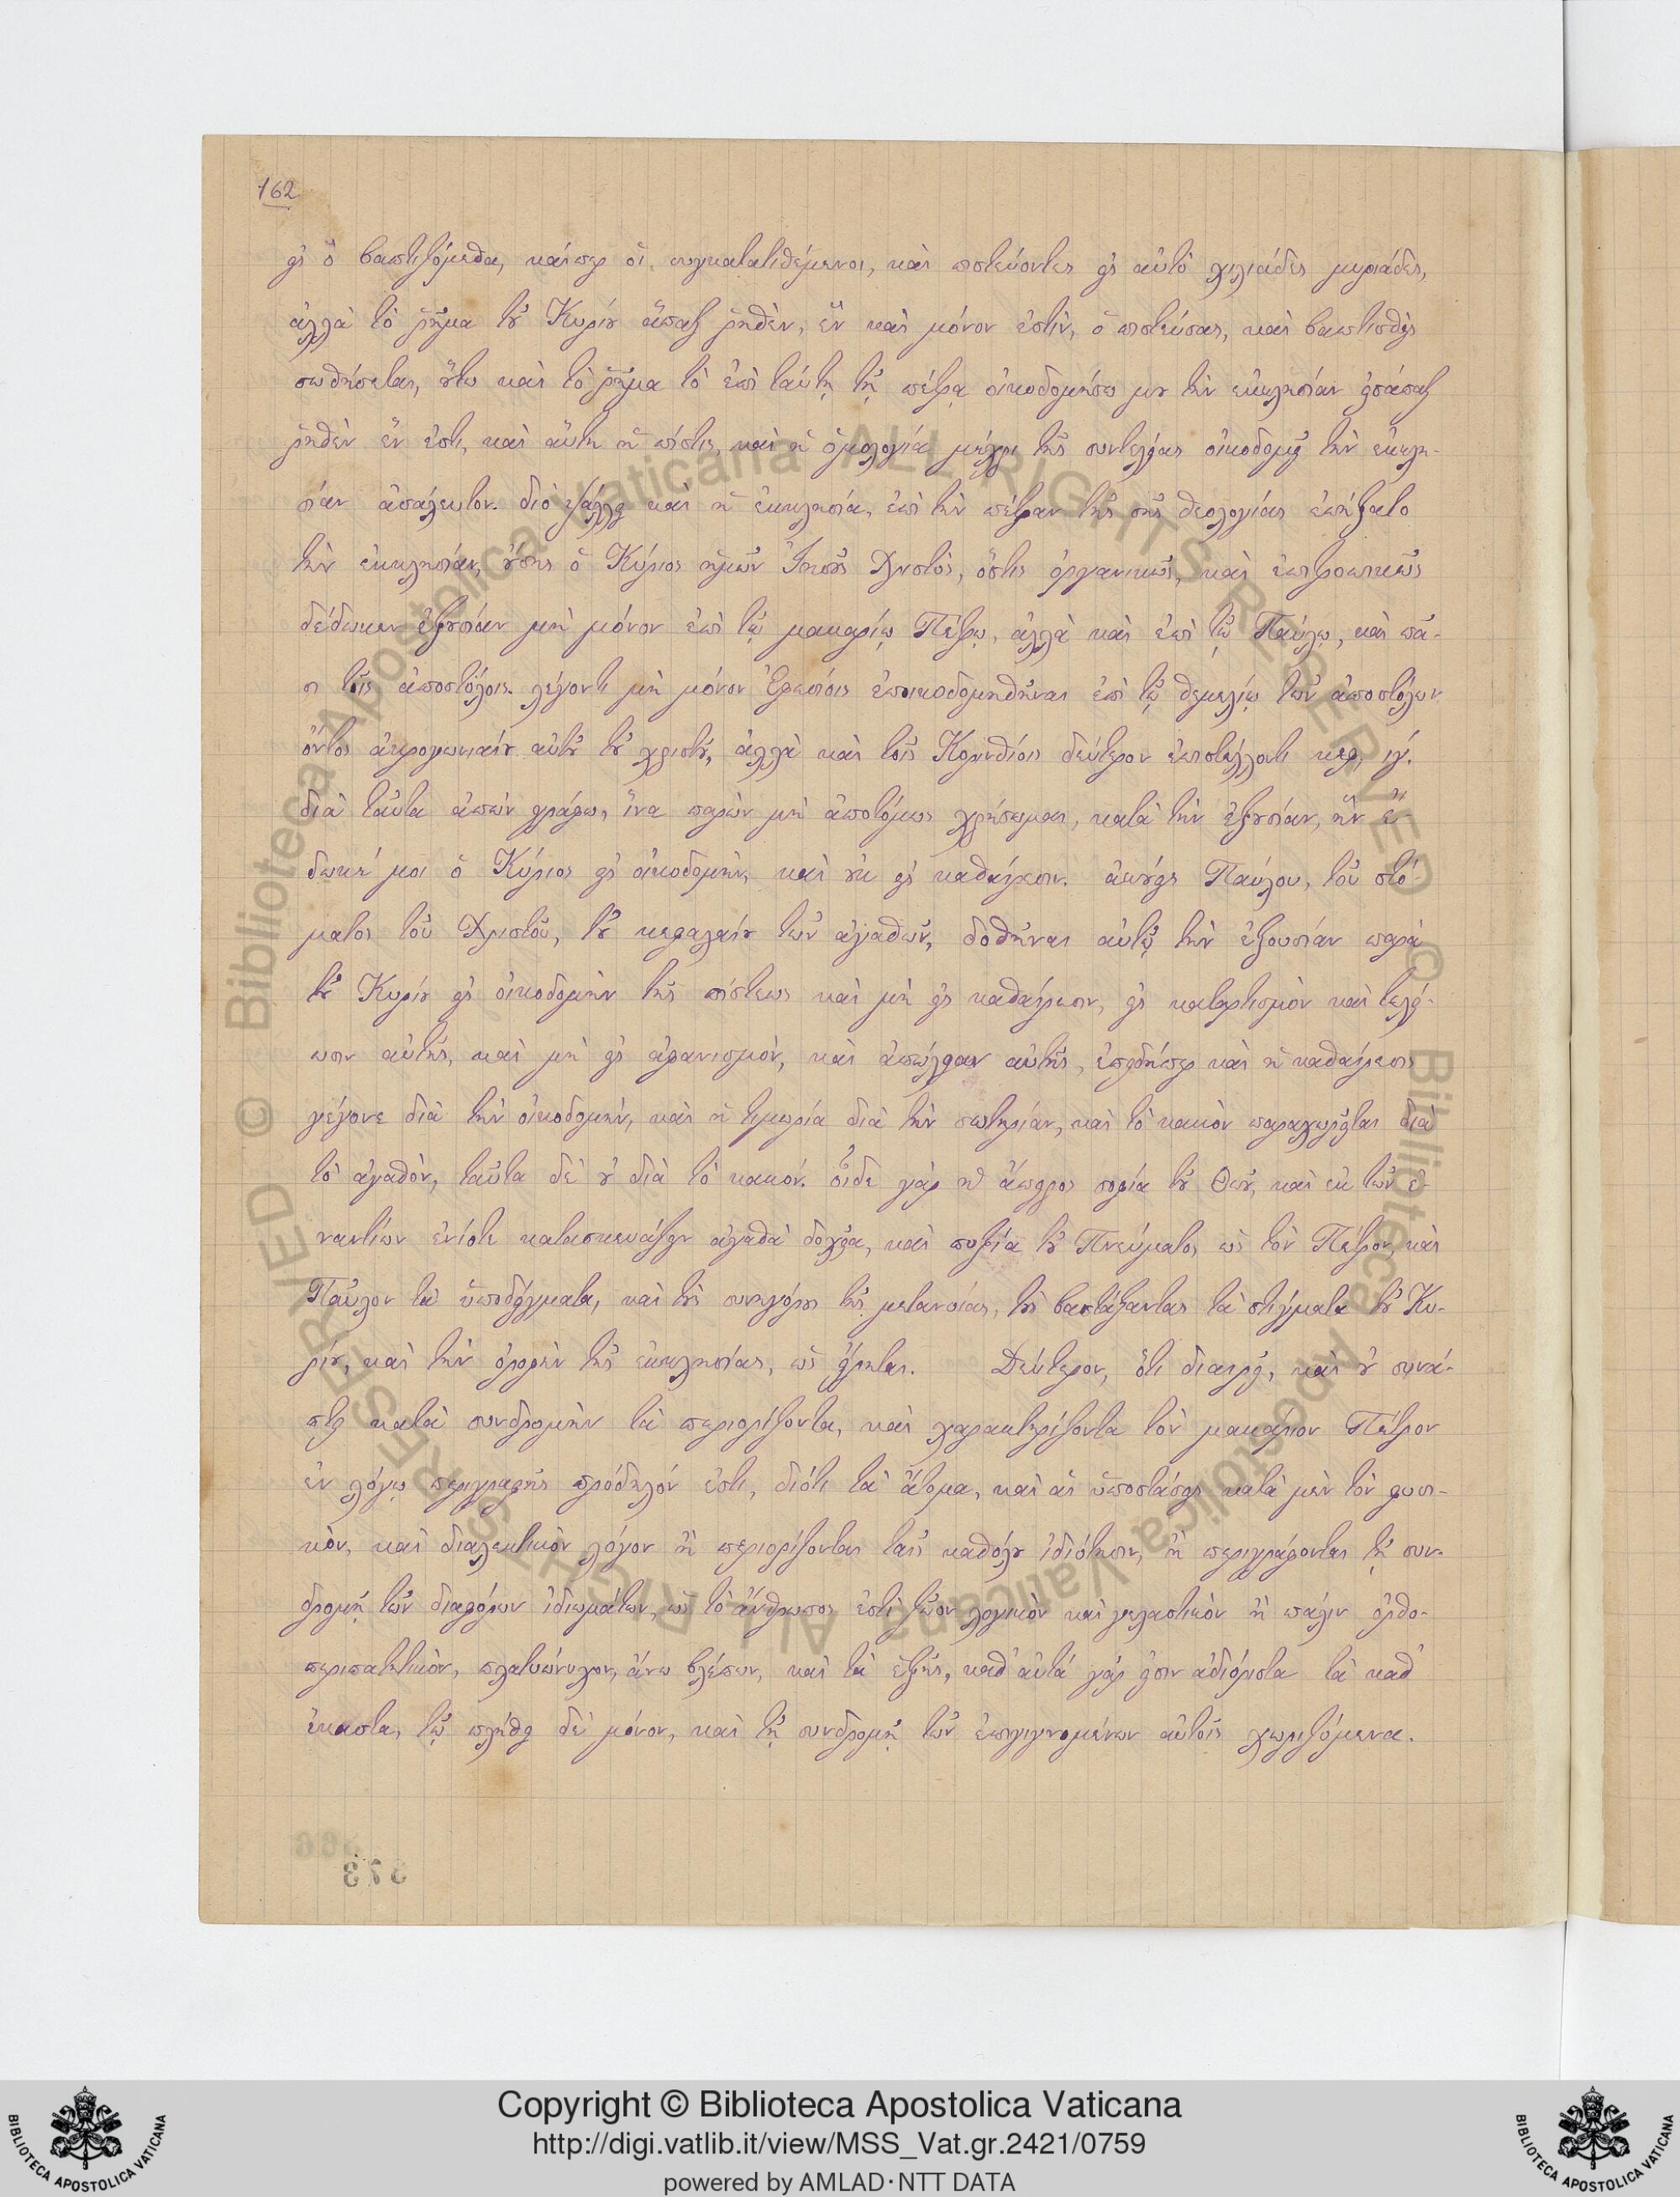 162
εἰς ὃ βαπτιζόμεθα, καίπερ οἱ συγκατατιθέμενοι, καὶ πιστεύοντες εἰς αὐτὸ χιλιάδες μυριάδες,
ἀλλὰ τὸ ῥῆμα τοῦ Κυρίου ἅπαξ ῥηθὲν, ἓν καὶ μόνον ἐστὶν, ὁ πιστεύσας, καὶ βαπτισθεὶς
σωθήσεται, οὕτω καὶ τὸ ῥῆμα τὸ ἐπὶ ταύτῃ τῇ πέτρᾳ οἰκοδομήσω μου τὴν ἐκκλησίαν εἰσάπαξ
ῥηθὲν ἓν ἐστι, καὶ αὕτη ἡ πίστις, καὶ ἡ ὁμολογία μέχρι τῆς συντελείας οἰκοδομεῖ τὴν ἐκκλη-
σίαν ἀσάλευτον. διὸ ψάλλει καὶ ἡ ἐκκλησία, ἐπὶ τὴν πέτραν τῆς σῆς θεολογίας ἐπήξατο
τὴν ἐκκλησίαν, οὗτος ὁ Κύριος ἡμῶν Ἰησοῦς Χριστὸς, ὅστις ὀργανικῶς, καὶ ἐπιτροπικῶς
δέδωκεν ἐξουσίαν μὴ μόνον ἐπὶ τῷ μακαρίῳ Πέτρῳ, ἀλλὰ καὶ ἐπὶ τῷ Παύλῳ, καὶ πᾶ-
σι τοῖς ἀποστόλοις λέγοντι μὴ μόνον Ἐφεσίοις ἐποικοδομηθῆναι ἐπὶ τῷ θεμελίῳ τῶν ἀποστόλων
ὄντος ἀκρογωνιαίου αὐτοῦ τοῦ χριστοῦ, ἀλλὰ καὶ τοῖς Κορινθίοις δεύτερον ἐπιστέλλοντι κεφ. ιγ.
διὰ ταῦτα ἀπὼν γράφω, ἵνα παρὼν μὴ ἀποτόμως χρήσωμαι, κατὰ τὴν ἐξουσίαν, ἣν ἔ-
δωκέ μοι ὁ Κύριος εἰς οἰκοδομὴν, καὶ οὐκ εἰς καθαίρεσιν. ἀκούεις Παύλου, τοῦ στό-
ματος τοῦ Χριστοῦ, τοῦ κεφαλαίου τῶν ἀγαθῶν, δοθῆναι αὐτῷ τὴν ἐξουσίαν παρὰ
τοῦ Κυρίου εἰς οἰκοδομὴν τῆς πίστεως καὶ μὴ εἰς καθαίρεσιν, εἰς καταρτισμὸν καὶ τελεί-
ωσιν αὐτῆς, καὶ μὴ εἰς ἀφανισμὸν, καὶ ἀπώλειαν αὐτῆς, ἐπειδήπερ καὶ ἡ καθαίρεσις
γέγονε διὰ τὴν οἰκοδομὴν, καὶ ἡ τιμωρία διὰ τὴν σωτηρίαν, καὶ τὸ κακὸν παραχωρεῖται διὰ
τὸ ἀγαθὸν, ταῦτα δὲ οὐ διὰ τὸ κακόν. οἶδε γὰρ ἡ ἄπειρος σοφία τοῦ Θεοῦ, καὶ ἐκ τῶν ἐ-
ναντίων ἐνίοτε κατασκευάζειν ἀγαθὰ δοχεῖα, καὶ πυξία τοῦ Πνεύματος ὡς τὸν Πέτρον, καὶ
Παῦλον τὰ ὑποδείγματα, καὶ τοὺς συνηγόρους τῆς μετανοίας, τοὺς βαστάζαντας τὰ στίγματα τοῦ Κυ-
ρίου, καὶ τὴν ὀροφὴν τῆς ἐκκλησίας, ὡς εἴρηται. Δεύτερον, ὅτι διαιρεῖ, καὶ οὐ συνά-
πτει κατὰ συνδρομὴν τὰ περιορίζοντα, καὶ χαρακτηρίζοντα τὸν μακάριον Πέτρον
ἐν λόγῳ περιγραφῆς πρόδηλόν ἐστι, διότι τὰ ἄτομα, καὶ αἱ ὑποστάσεις κατὰ μὲν τὸν φυσι-
κὸν, καὶ διαλεκτικὸν λόγον ἢ περιορίζονται ταῖς καθόλου ἰδιότησιν, ἢ περιγράφονται τῇ συν-
δρομῇ τῶν διαφόρων ἰδιωμάτων, ὡς τὸ ἄνθρωπος ἐστὶ ζῶον λογικὸν καὶ γελαστικὸν ἢ πάλιν ὀρθο-
περιπατητικὸν, πλατυώνυχον, ἄνω βλέπων, καὶ τὰ ἑξῆς, καθ' αὑτά γάρ εἰσιν ἀδιόριστα τὰ καθ'
ἕκαστα, τῷ πλήθει δὲ μόνον, καὶ τῇ συνδρομῇ τῶν ἐπιγινομένων αὐτοῖς χωριζόμενα.
373
Copyright © Biblioteca Apostolica Vaticana
http://digi.vatlib.it/view/MSS_Vat.gr.2421/0759
powered by AMLAD·NTT DATA